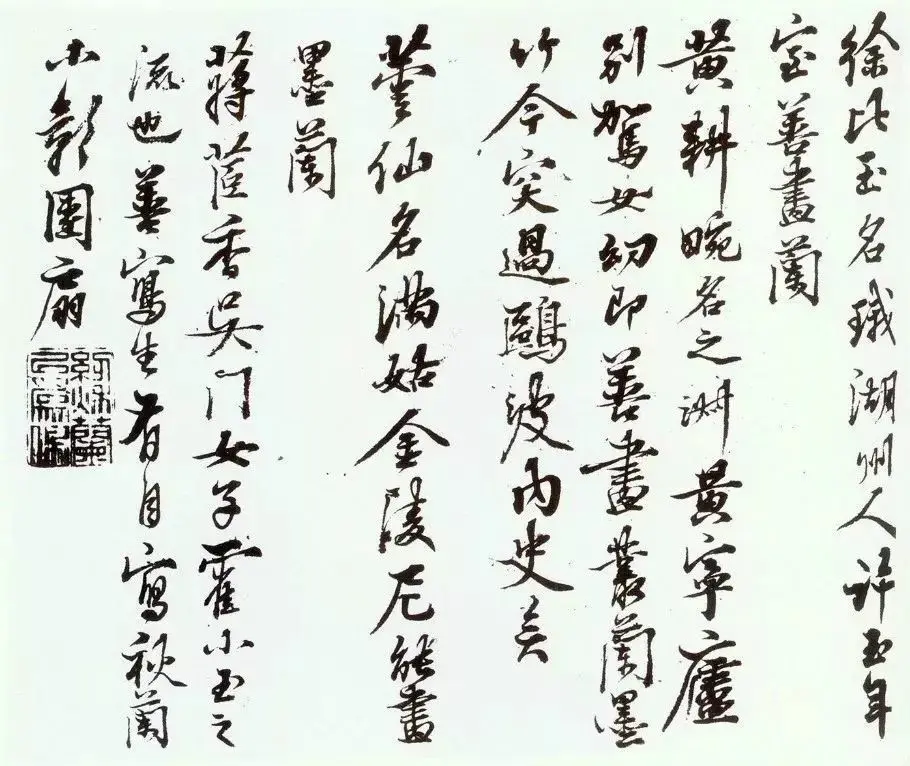 徐比玉名湖州人許玉年
室善畫蘭
黄耕畹名之淑黄寧廬
别駕女幼即善畫叢蘭墨
竹今突過鷗波内史矣
仙名滿姑金陵尼能畫
墨蘭
蔣茝香吳門女子霍小玉之
流也善寫生有自寫秋蘭
小影團扇
紉秋蘭
以爲佩